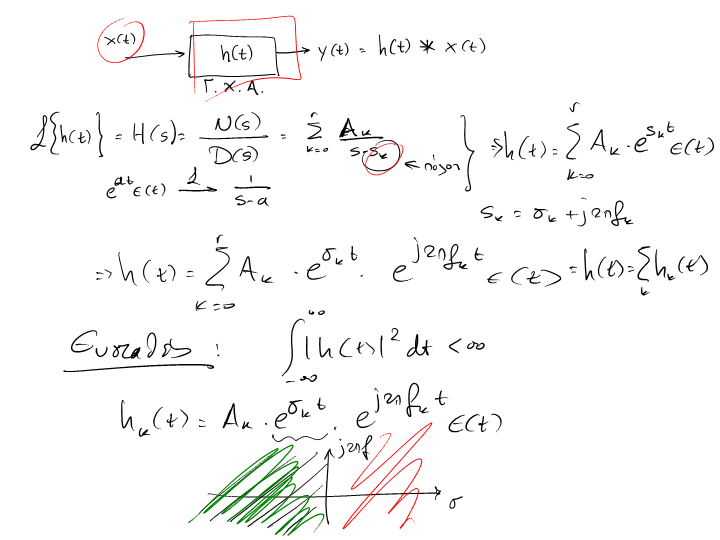 x(t) h(t) → y(t) = h(t) * x(t)
Γ.Χ.Α.
ℒ{h(t)} = H(s) = N(s)/D(s) = Σ_{k=0}^{r} A_k/(s-s_k) ← πόλοι } ⇒ h(t) = Σ_{k=0}^{r} A_k · e^{s_k t} ε(t)
e^{at} ε(t) →^ℒ 1/(s-a)
s_k = σ_k + j2πf_k
⇒ h(t) = Σ_{k=0}^{r} A_k · e^{σ_k t} · e^{j2πf_k t} ε(t) = h(t) = Σ_k h_k(t)
Ευστάθεια : ∫_{-∞}^{∞} |h(t)|² dt < ∞
h_k(t) = A_k · e^{σ_k t} · e^{j2πf_k t} ε(t)
j2πf
σ